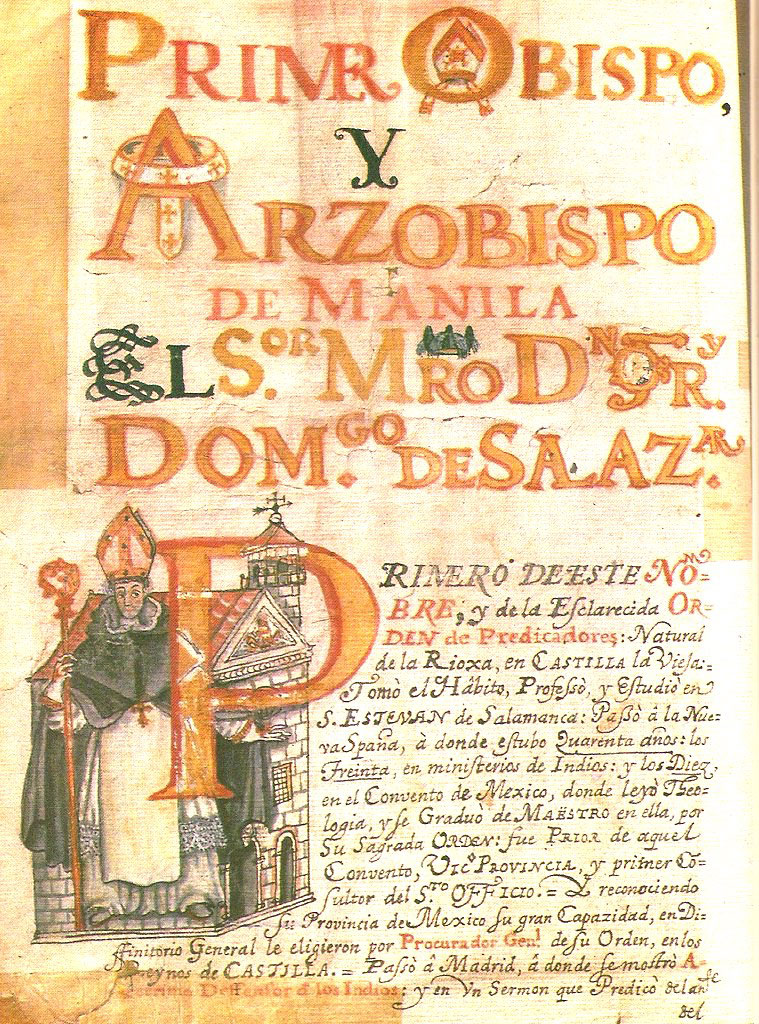 PRIMER OBISPO,
Y
ARZOBISPO
DE MANILA
EL S.OR MRO D.N FR.Y
DOM.GO DE SALAZ.AR
PRIMERO DE ESTE NOM=
BRE; y de la Esclarecida OR=
DEN de Predicadores: Natural
de la Rioxa, en CASTILLA la Vieja:
Tomò el Hábito, Professò, y Estudiò en
S. ESTEVAN de Salamanca: Passò â la Nue=
va Spaña, à donde estubo Quarenta años: los
Treinta, en ministerios de Indios: y los Diez,
en el Convento de Mexico, donde leyò Theo=
logia, y se Graduò de MAËSTRO en ella, por
Su Sagrada ORDEN: fue PRIOR de aquel
Convento, VIC.º PROVINCIA, y primer Co=
sultor del S.TO OFFICIO. = Y reconociendo
su Provincia de Mexico su gran Capazidad, en Di=
ffinitorio General le eligieron por Procurador Gen.l de su Orden, en los
Reynos de CASTILLA. = Passò â Madrid, â donde se mostrò A=
Deffensor d los Indios: y en Vn Sermon que Predicò delante
del